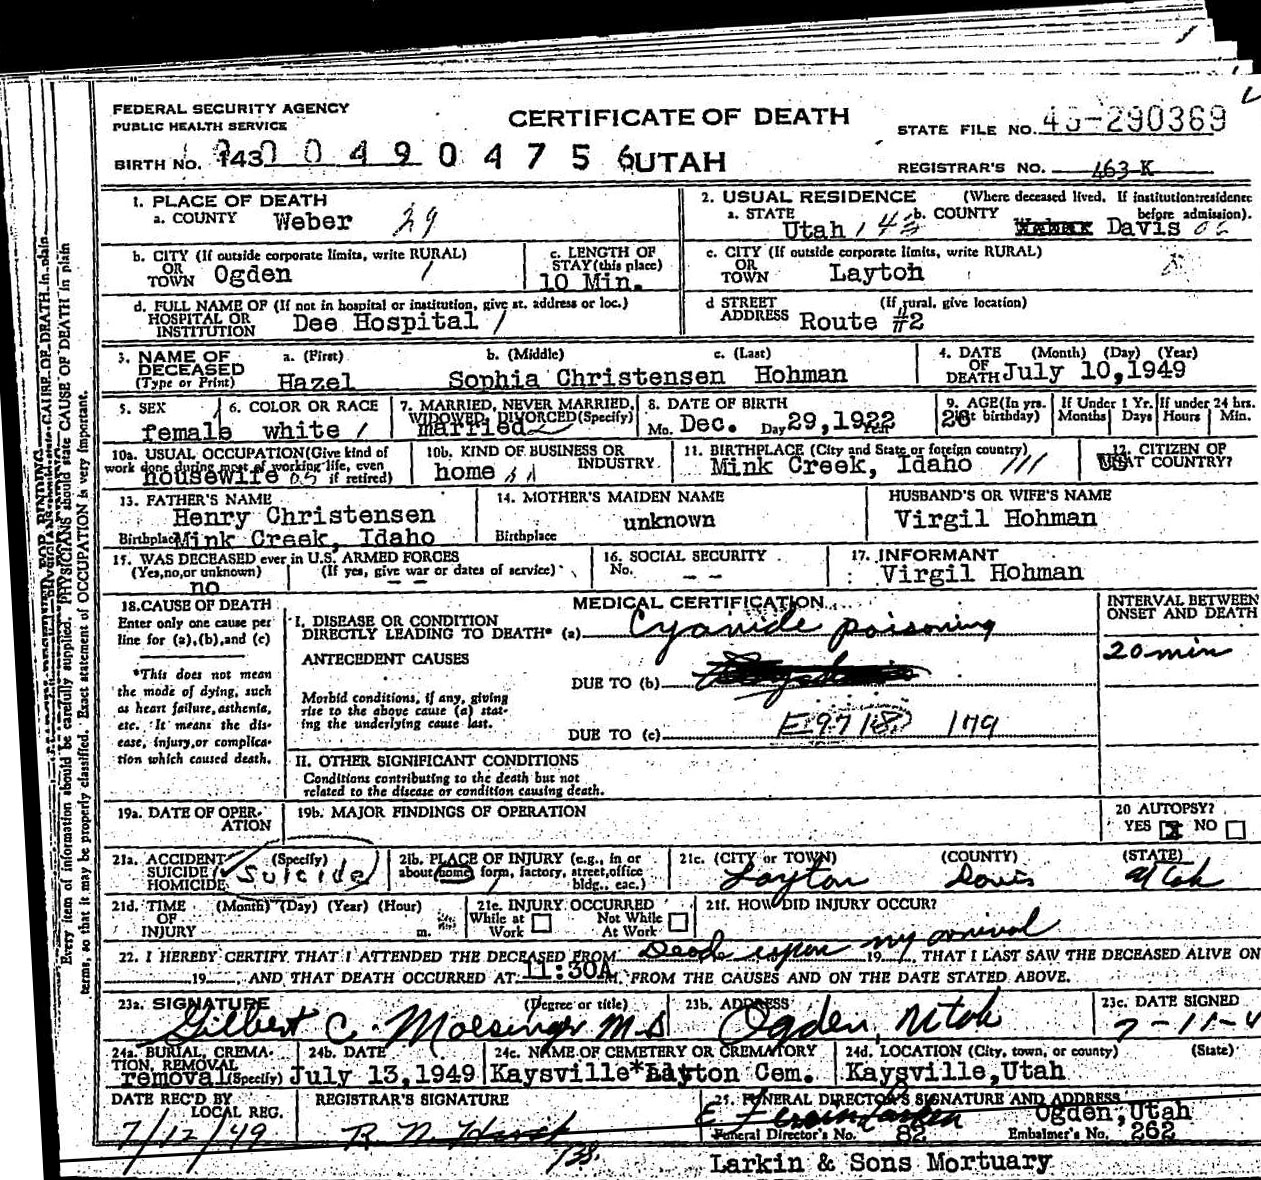 FEDERAL SECURITY AGENCY
PUBLIC HEALTH SERVICE
CERTIFICATE OF DEATH
STATE FILE NO. 49-290369
BIRTH NO. 143 0 0 4 9 0 4 7 5 6 UTAH
REGISTRAR'S NO. 463-K
1. PLACE OF DEATH
a. COUNTY Weber 29
2. USUAL RESIDENCE (Where deceased lived. If institution:residence before admission).
a. STATE Utah 43 b. COUNTY Davis 06
b. CITY (If outside corporate limits, write RURAL)
OR
TOWN Ogden 1
c. LENGTH OF
STAY (this place)
10 Min.
c. CITY (If outside corporate limits, write RURAL)
OR
TOWN Layton
d. FULL NAME OF (If not in hospital or institution, give st. address or loc.)
HOSPITAL OR
INSTITUTION Dee Hospital 1
d STREET (If rural, give location)
ADDRESS Route #2
3. NAME OF
DECEASED
(Type or Print)
a. (First) b. (Middle) c. (Last)
Hazel Sophia Christensen Hohman
4. DATE (Month) (Day) (Year)
OF
DEATH July 10,1949
5. SEX
female
6. COLOR OR RACE
white
7. MARRIED, NEVER MARRIED,
WIDOWED, DIVORCED(Specify)
married
8. DATE OF BIRTH
Mo. Dec. Day 29,1922
9. AGE(In yrs.
last birthday)
26
If Under 1 Yr.
Months Days
If under 24 hrs.
Hours Min.
10a. USUAL OCCUPATION(Give kind of
work done during most of working life, even
if retired)
housewife 05
10b. KIND OF BUSINESS OR
INDUSTRY
home
11. BIRTHPLACE (City and State or foreign country)
Mink Creek, Idaho
12. CITIZEN OF
WHAT COUNTRY?
US
13. FATHER'S NAME
Henry Christensen
Birthplace Mink Creek, Idaho
14. MOTHER'S MAIDEN NAME
unknown
Birthplace
HUSBAND'S OR WIFE'S NAME
Virgil Hohman
15. WAS DECEASED ever in U.S. ARMED FORCES
(Yes,no,or unknown) (If yes, give war or dates of service)
no - -
16. SOCIAL SECURITY
No. - -
17. INFORMANT
Virgil Hohman
18. CAUSE OF DEATH
Enter only one cause per
line for (a),(b),and (c)
*This does not mean
the mode of dying, such
as heart failure, asthenia,
etc. It means the dis-
ease, injury,or complica-
tion which caused death.
MEDICAL CERTIFICATION
INTERVAL BETWEEN
ONSET AND DEATH
I. DISEASE OR CONDITION
DIRECTLY LEADING TO DEATH* (a) Cyanide poisoning
20 min
ANTECEDENT CAUSES
DUE TO (b)
Morbid conditions, if any, giving
rise to the above cause (a) stat-
ing the underlying cause last.
DUE TO (c) E971 (8) 179
II. OTHER SIGNIFICANT CONDITIONS
Conditions contributing to the death but not
related to the disease or condition causing death.
19a. DATE OF OPER-
ATION
19b. MAJOR FINDINGS OF OPERATION
20 AUTOPSY?
YES X NO
21a. ACCIDENT (Specify)
SUICIDE
HOMICIDE
Suicide
21b. PLACE OF INJURY (e.g., in or
about home, form, factory, street,office
bldg., eac.)
21c. (CITY or TOWN) (COUNTY) (STATE)
Layton Davis Utah
21d. TIME (Month) (Day) (Year) (Hour)
OF
INJURY m.
21e. INJURY OCCURRED
While at Work
Not While At Work
21f. HOW DID INJURY OCCUR?
Dead upon my arrival
22. I HEREBY CERTIFY THAT I ATTENDED THE DECEASED FROM 19 , THAT I LAST SAW THE DECEASED ALIVE ON
19 , AND THAT DEATH OCCURRED AT 11:30A M, FROM THE CAUSES AND ON THE DATE STATED ABOVE.
23a. SIGNATURE (Degree or title)
Gilbert C. Moesinger M.D
23b. ADDRESS
Ogden, Utah
23c. DATE SIGNED
7-11-4
24a. BURIAL, CREMA-
TION, REMOVAL
(Specify)
removal
24b. DATE
July 13,1949
24c. NAME OF CEMETERY OR CREMATORY
Kaysville*Layton Cem.
24d. LOCATION (City, town, or county) (State)
Kaysville,Utah
DATE REC'D BY
LOCAL REG.
7/12/49
REGISTRAR'S SIGNATURE
25. FUNERAL DIRECTOR'S SIGNATURE AND ADDRESS
Ogden, Utah
Funeral Director's No. 82 Embalmer's No. 262
Larkin & Sons Mortuary
Every item of information should be carefully supplied. PHYSICIANS should state CAUSE OF DEATH in plain
terms, so that it may be properly classified. Exact statement of OCCUPATION is very important.